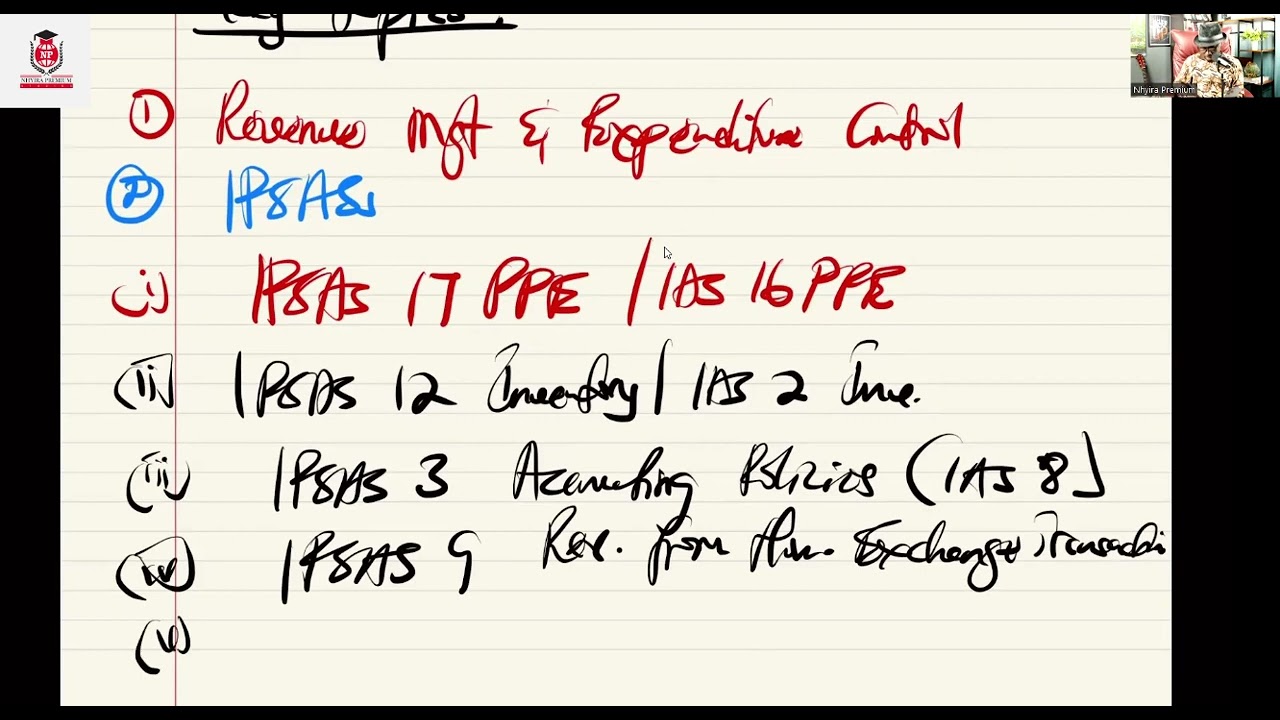 NP
NHYIRA PREMIUM
Nhyira Premium
Key Topics:
① Revenue Mgt & Expenditure Control
② IPSASs
(i) IPSAS 17 PPE / IAS 16 PPE
(ii) IPSAS 12 Inventory / IAS 2 Inve.
(iii) IPSAS 3 Accounting Policies (IAS 8)
(iv) IPSAS 9 Rev. from Exchange Transacti
(v)